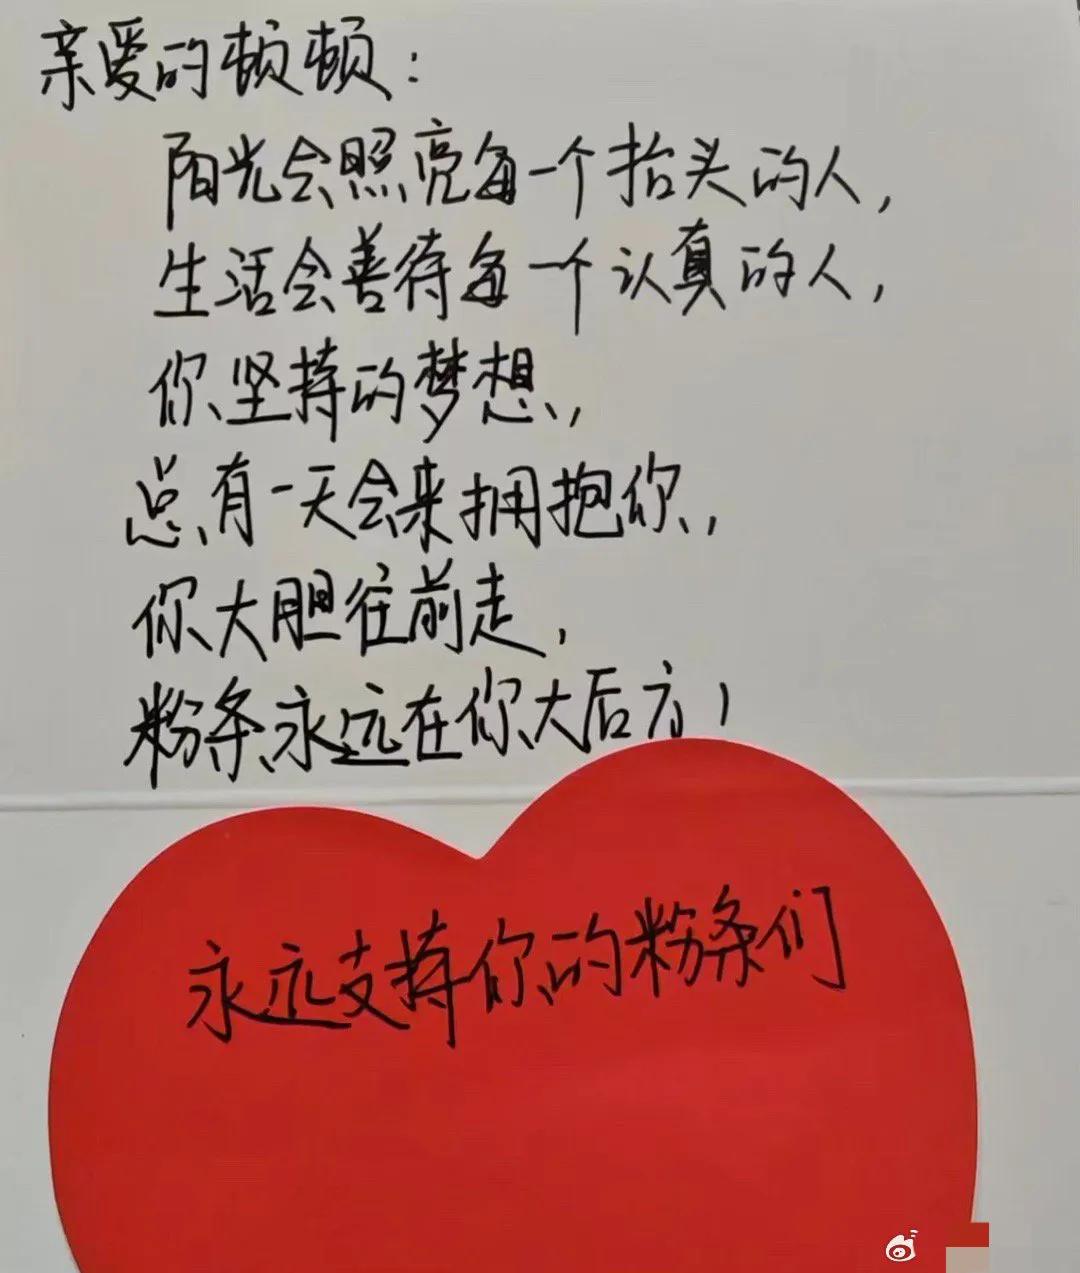 亲爱的顿顿：
阳光会照亮每一个抬头的人，
生活会善待每一个认真的人，
你坚持的梦想，
总有一天会来拥抱你，
你大胆往前走，
粉条永远在你大后方！
永远支持你的粉条们